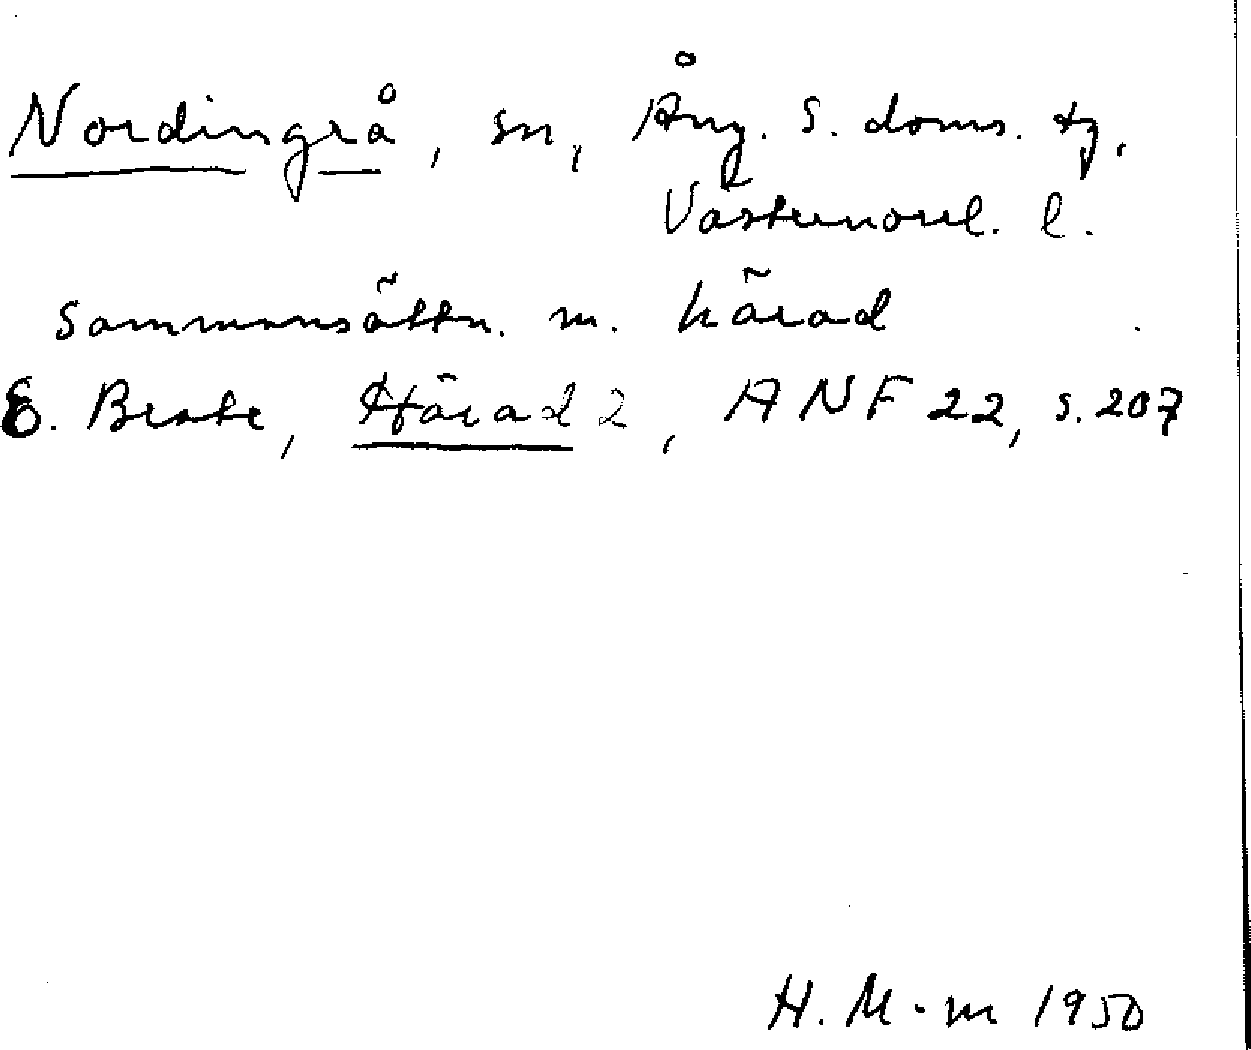 Nordingrå, sn, Ång. S. doms. tg.
Västernorrl. l.
sammansättn. m. härad
E. Brate, Härad 2, ANF 22, s. 207
H. M-m 1950